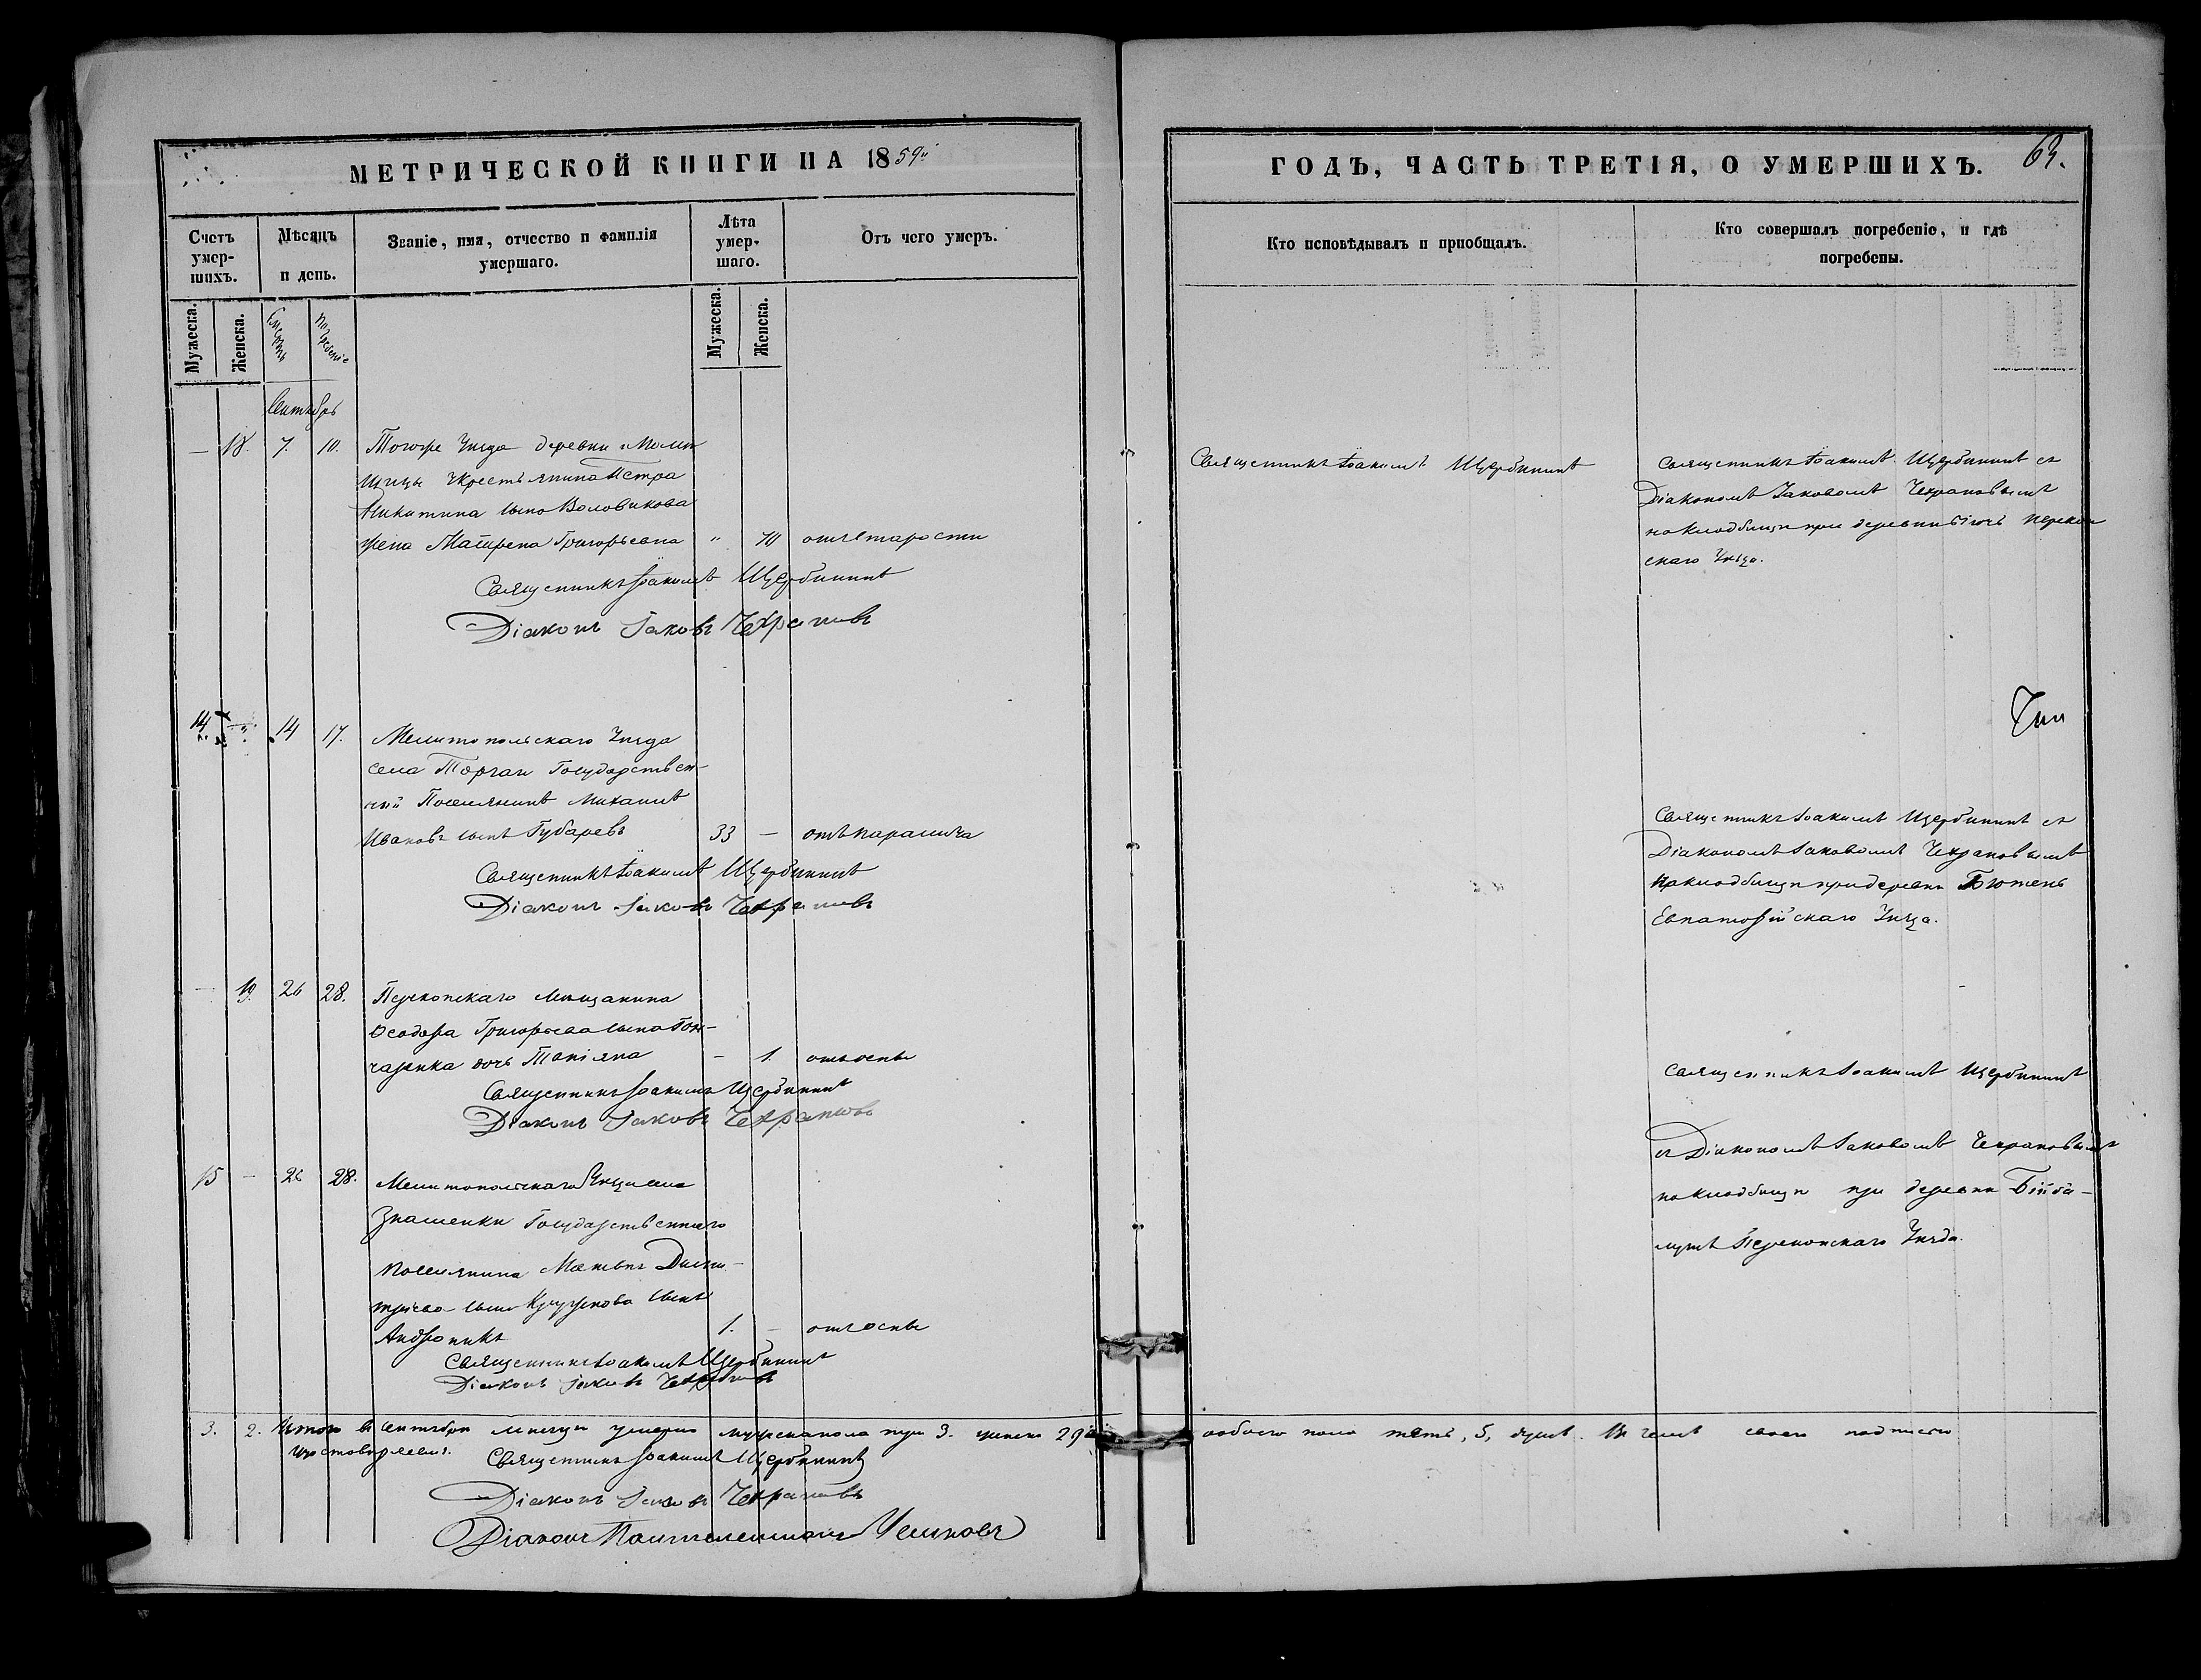 МЕТРИЧЕСКОЙ КНИГИ НА 1859й
Счетъ умершихъ.
Мѣсяцъ и день.
Званіе, имя, отчество и фамилія умершаго.
Лѣта умершаго.
Отъ чего умеръ.
Мужеска.
Женска.
Смерть
Погребеніе
Мужеска.
Женска.
Сентябрь
— 18. 7. 10. Тогоже Уѣзда деревни
Крестьянина Петра
Никитина сына Воловикова
жена Матрена Григорьевна " 70 отъ старости
Священникъ Іоакимъ Щербининъ
Діаконъ Іаковъ Чехрановъ
14. — 14 17. Мелитопольскаго Уѣзда
села Торгаи Государствен-
ный Поселянинъ Михаилъ
Ивановъ сынъ Губаревъ 33 — отъ паралича
Священникъ Іоакимъ Щербининъ
Діаконъ Іаковъ Чехрановъ
— 19. 26 28. Перекопскаго Мѣщанина
Ѳеодора Григорьева сына Гон-
чаренка дочь Татіяна — 1. отъ оспы
Священникъ Іоакимъ Щербининъ
Діаконъ Іаковъ Чехрановъ
15 — 26 28. Мелитопольскаго Уѣзда села
Знаменки Государственнаго
поселянина Матвѣя Дими-
тріева сына сынъ
Андроникъ 1. — отъ оспы
Священникъ Іоакимъ Щербининъ
Діаконъ Іаковъ Чехрановъ
3. 2. Итого въ Сентябрѣ мѣсяцѣ умерло мужеска пола три 3. женска 2
удостовѣряемъ.
Священникъ Іоакимъ Щербининъ
Діаконъ Іаковъ Чехрановъ
Діаконъ Пантелеимонъ
ГОДЪ, ЧАСТЬ ТРЕТІЯ, О УМЕРШИХЪ.
63.
Кто исповѣдывалъ и пріобщалъ.
Кто совершалъ погребеніе, и гдѣ погребены.
Священникъ Іоакимъ Щербининъ
Священникъ Іоакимъ Щербининъ съ
Діакономъ Іаковомъ Чехрановымъ
на кладбищѣ при деревни Перекоп
скаго Уѣзда.
Священникъ Іоакимъ Щербининъ съ
Діакономъ Іаковомъ Чехрановымъ
на кладбищѣ при деревни Бютень
Евпаторійскаго Уѣзда.
Священникъ Іоакимъ Щербининъ
съ Діакономъ Іаковомъ Чехрановымъ
на кладбищѣ при деревни
Перекопскаго Уѣзда.
обоего пола пять, 5, душъ. Въ чемъ своею подписью